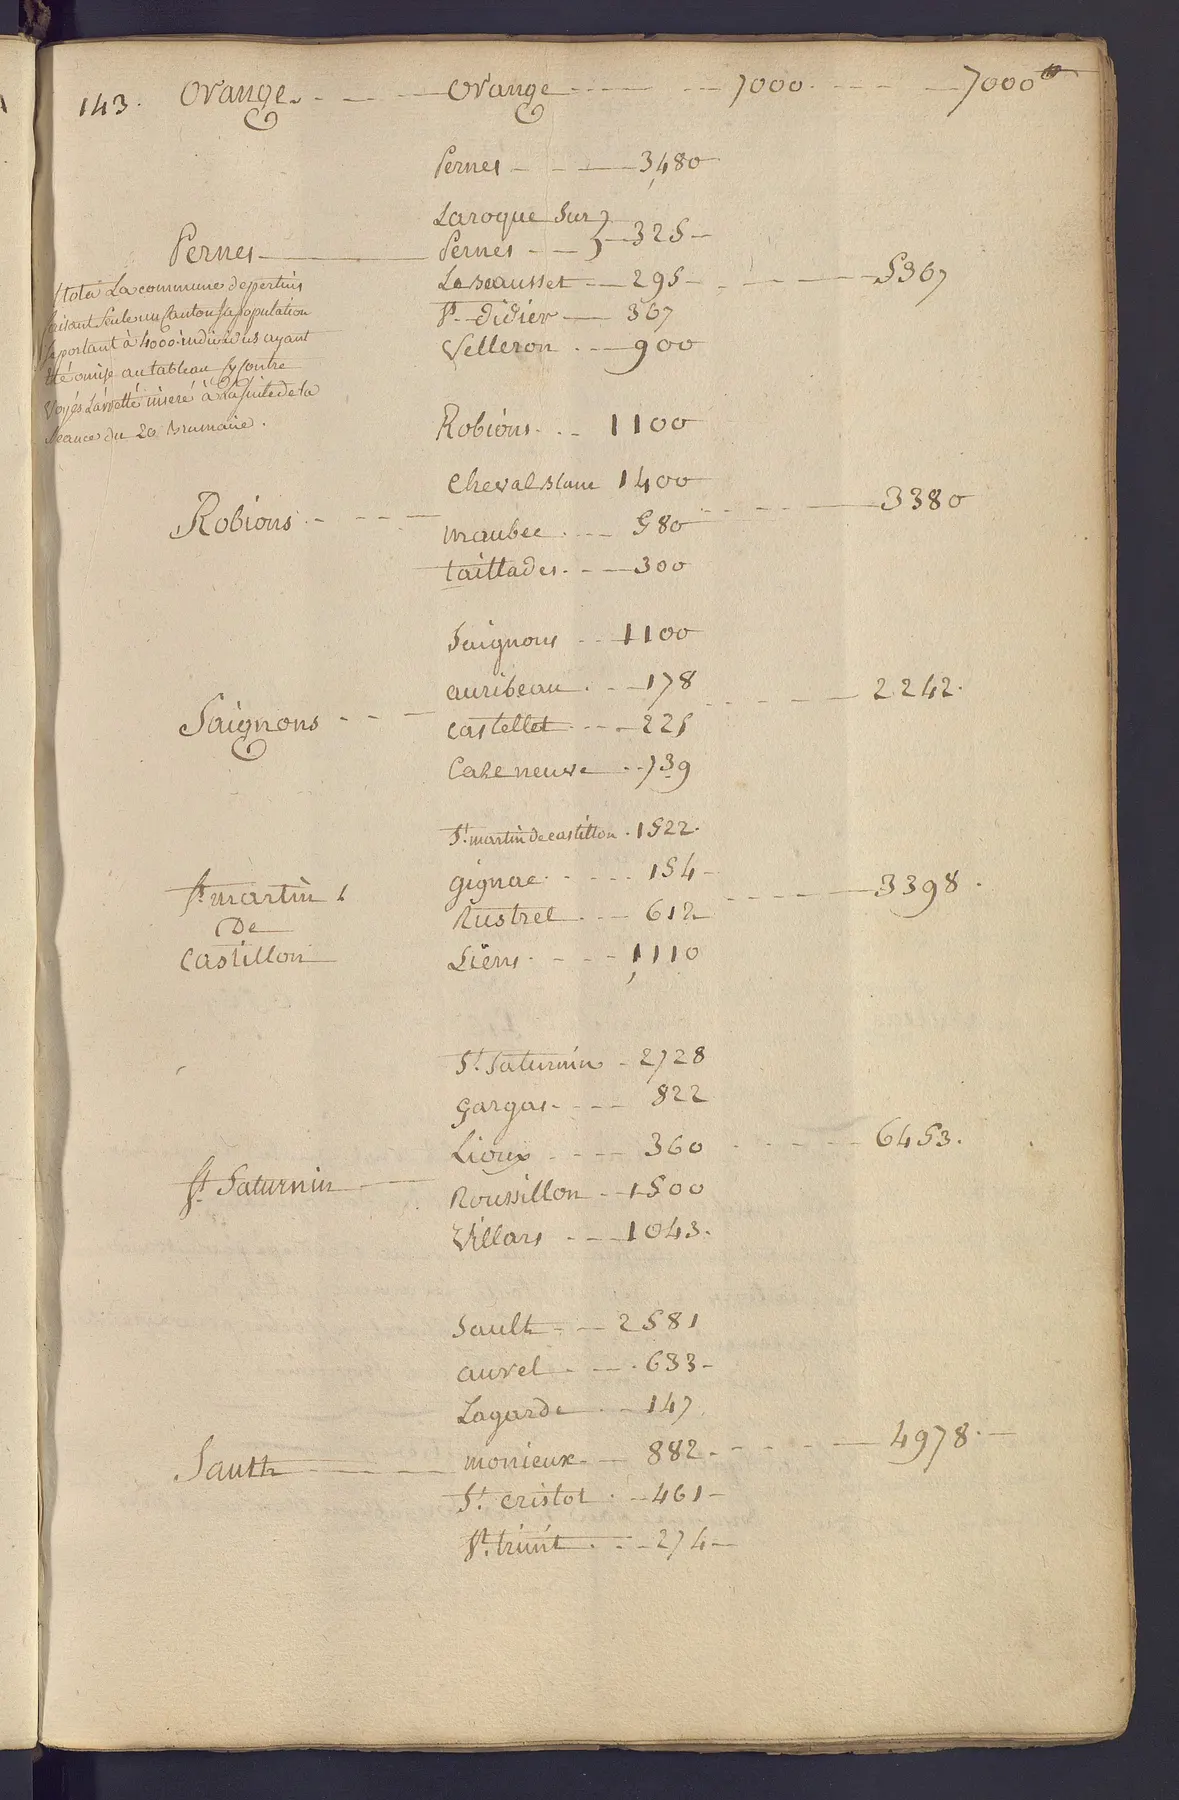 143. Orange Orange 7000 7000
Pernes 3480
Laroque sur
Pernes 325
Pernes
Le Beausset 295 5367
St didier 367
Velleron 900
Nota La commune de pertuis
faisant seule un Canton sa population
se portant à 4000 individus ayant
été omise au tableau cy contre
Voyés L'arretté inseré à La suite de la
seance du 20 Brumaire.
Robions 1100
cheval Blanc 1400
Robions 3380
maubec 580
taillades 300
Saignons 1100
auribeau 178 2242.
Saignons
castellet 225
Caseneuve 739
St. martin de castillon 1522.
gignac 154
St. martin 3398.
De Rustrel 612
castillon Liens 1110
St. Saturnin 2728
gargas 822
Lioux 360 6453.
St. Saturnin
Roussillon 1500
Villars 1043.
Sault 2581
aurel 633
Lagarde 147
Sault monieux 882 4978.
St. cristol 461
St. trinit 274